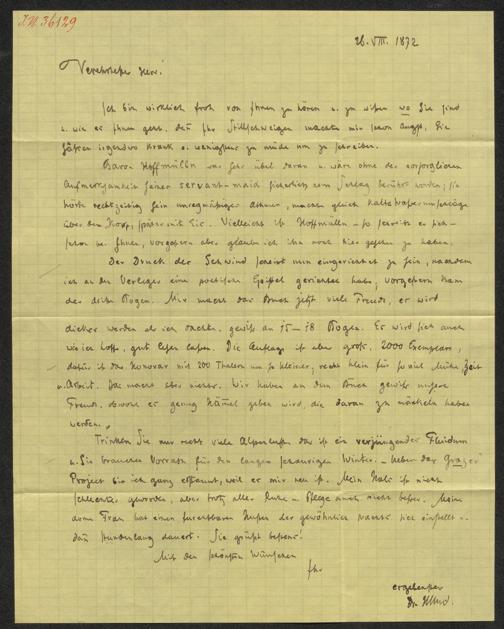 I.N. 36129
26. VIII. 1872
Verehrtester Herr!
Ich bin wirklich froh von Ihnen zu hören u. zu wissen wo Sie sind
u. wie es Ihnen geht, denn Ihr Stillschweigen machte mir schon Angst, Sie
irgendwo krank o. wenigstens zu müde um zu schreiben.
Baron Hoffmüllen war sehr übel daran u. wäre ohne die
Aufmerksamkeit seiner servant-maid sicherlich vom Schlag berührt worden; sie
hörte rechtzeitig sein unregelmäßiges Athmen, machte gleich kalte Wasserumschläge
über den Kopf, später mit Eis. Vielleicht ist Hoffmüllen – so schreibt er –
schon bei Ihnen, vorgestern aber glaube ich ihn noch hier gesehen zu haben.
Der Druck der Schwind scheint nun eingerichtet zu sein, nachdem
ich an den Verleger eine poetische Epistel gerichtet habe; vorgestern kam
der dritte Bogen. Mir macht das Buch jetzt viele Freude, er wird
dicker werden als ich dachte, gewiß an 15–18 Bogen. Es wird sich auch
wie ich hoffe, gut lesen lassen. Die Auflage ist aber groß, 2000 Exemplare,
dafür ist das Honorar mit 200 Thalern um so kleiner, recht klein für so viel Mühe Zeit
u. Arbeit. Das macht aber nichts. Wir haben an dem Buch gewiß unsere
Freude, obwohl es genug geben wird, die daran zu mäkeln haben
werden.
Trinken Sie nur recht viele Alpenluft, das ist ein verjüngender Fluidum
u. Sie brauchen Vorrath für den langen schaurigen Winter. – Ueber das Grazer
Project bin ich ganz erstaunt, weil es mir neu ist. Mein Hals ist nicht
schlechter geworden, aber trotz aller Ruhe u. Pflege auch nicht besser. Meine
arme Frau hat einen furchtbaren Husten der gewöhnlich Nachts sich einstellt u.
dann stundenlang dauert. Sie grüßt bestens!
Mit den schönsten Wünschen
Ihr
ergebenster
Dr.